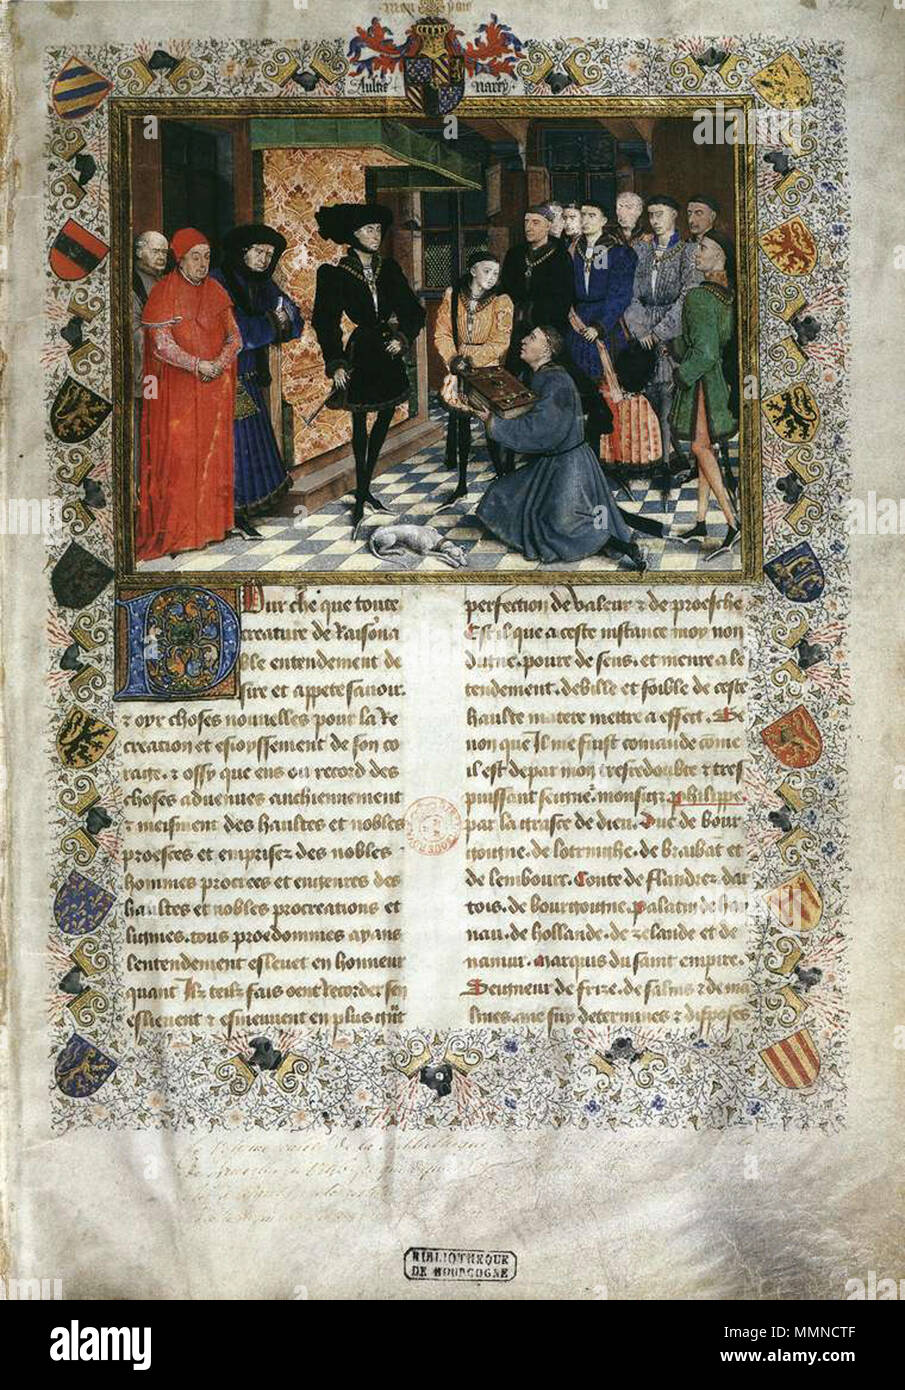 Aultre
narey
Pur che que toute
creature de Raisona
ble entendement de
sire et appete sauoir
⁊ oyr choses nouuelles pour la Re
creation et esioyssement de son co
rage. ⁊ ossy que ens ou record des
choses aduenues anchiennement
⁊ meisment des haultes et nobles
proesces et emprises des nobles
hommes procrees et engenres des
haultes et nobles procreations et
lignies. tous proedommes ayans
lentendement esleuet en honneur
quant Ilz teilz fais oent Recorder sen
esliēuent ⁊ esmeuuent en plus grāt
perfection de valeur ⁊ de proesche
Est il que a ceste instance moy non
digne. poure de sens. et menre a le
tendement. debille et foible de ceste
haulte matere mettre a effect. Se
non que Il me fuist comande cōme
il est de par mon tresredoubte ⁊ tres
puissant seigneʳ. monsigr phelippe.
par la grasce de dieu. Duc de bour
gongne. de lotringhe. de braibāt et
de lembourc. Conte de flandrez dar
tois. de bourgongne. palatin de hay
nau. de hollande. de zelande et de
namur. marquis du saint empire.
Seigneur de frize. de salins ⁊ de ma
lines. me suy determines ⁊ disposes
BIBLIOTHEQUE
DE BOURGOGNE
alamy
Image ID: MMNCTF
www.alamy.com